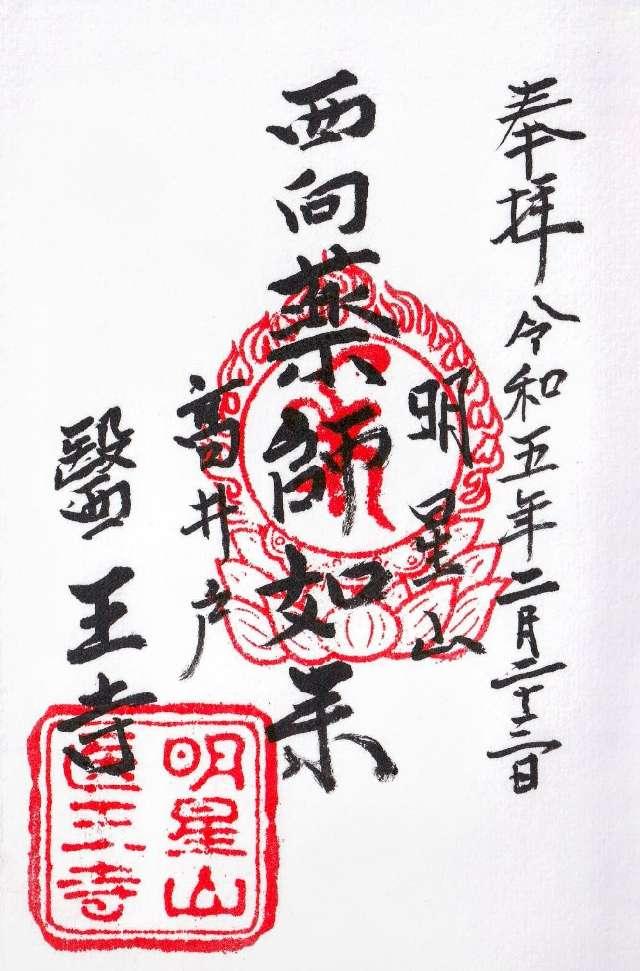 奉拝 令和五年二月二十三日
明星山
西向薬師如来
高井戸
醫王寺
明星山
醫王寺